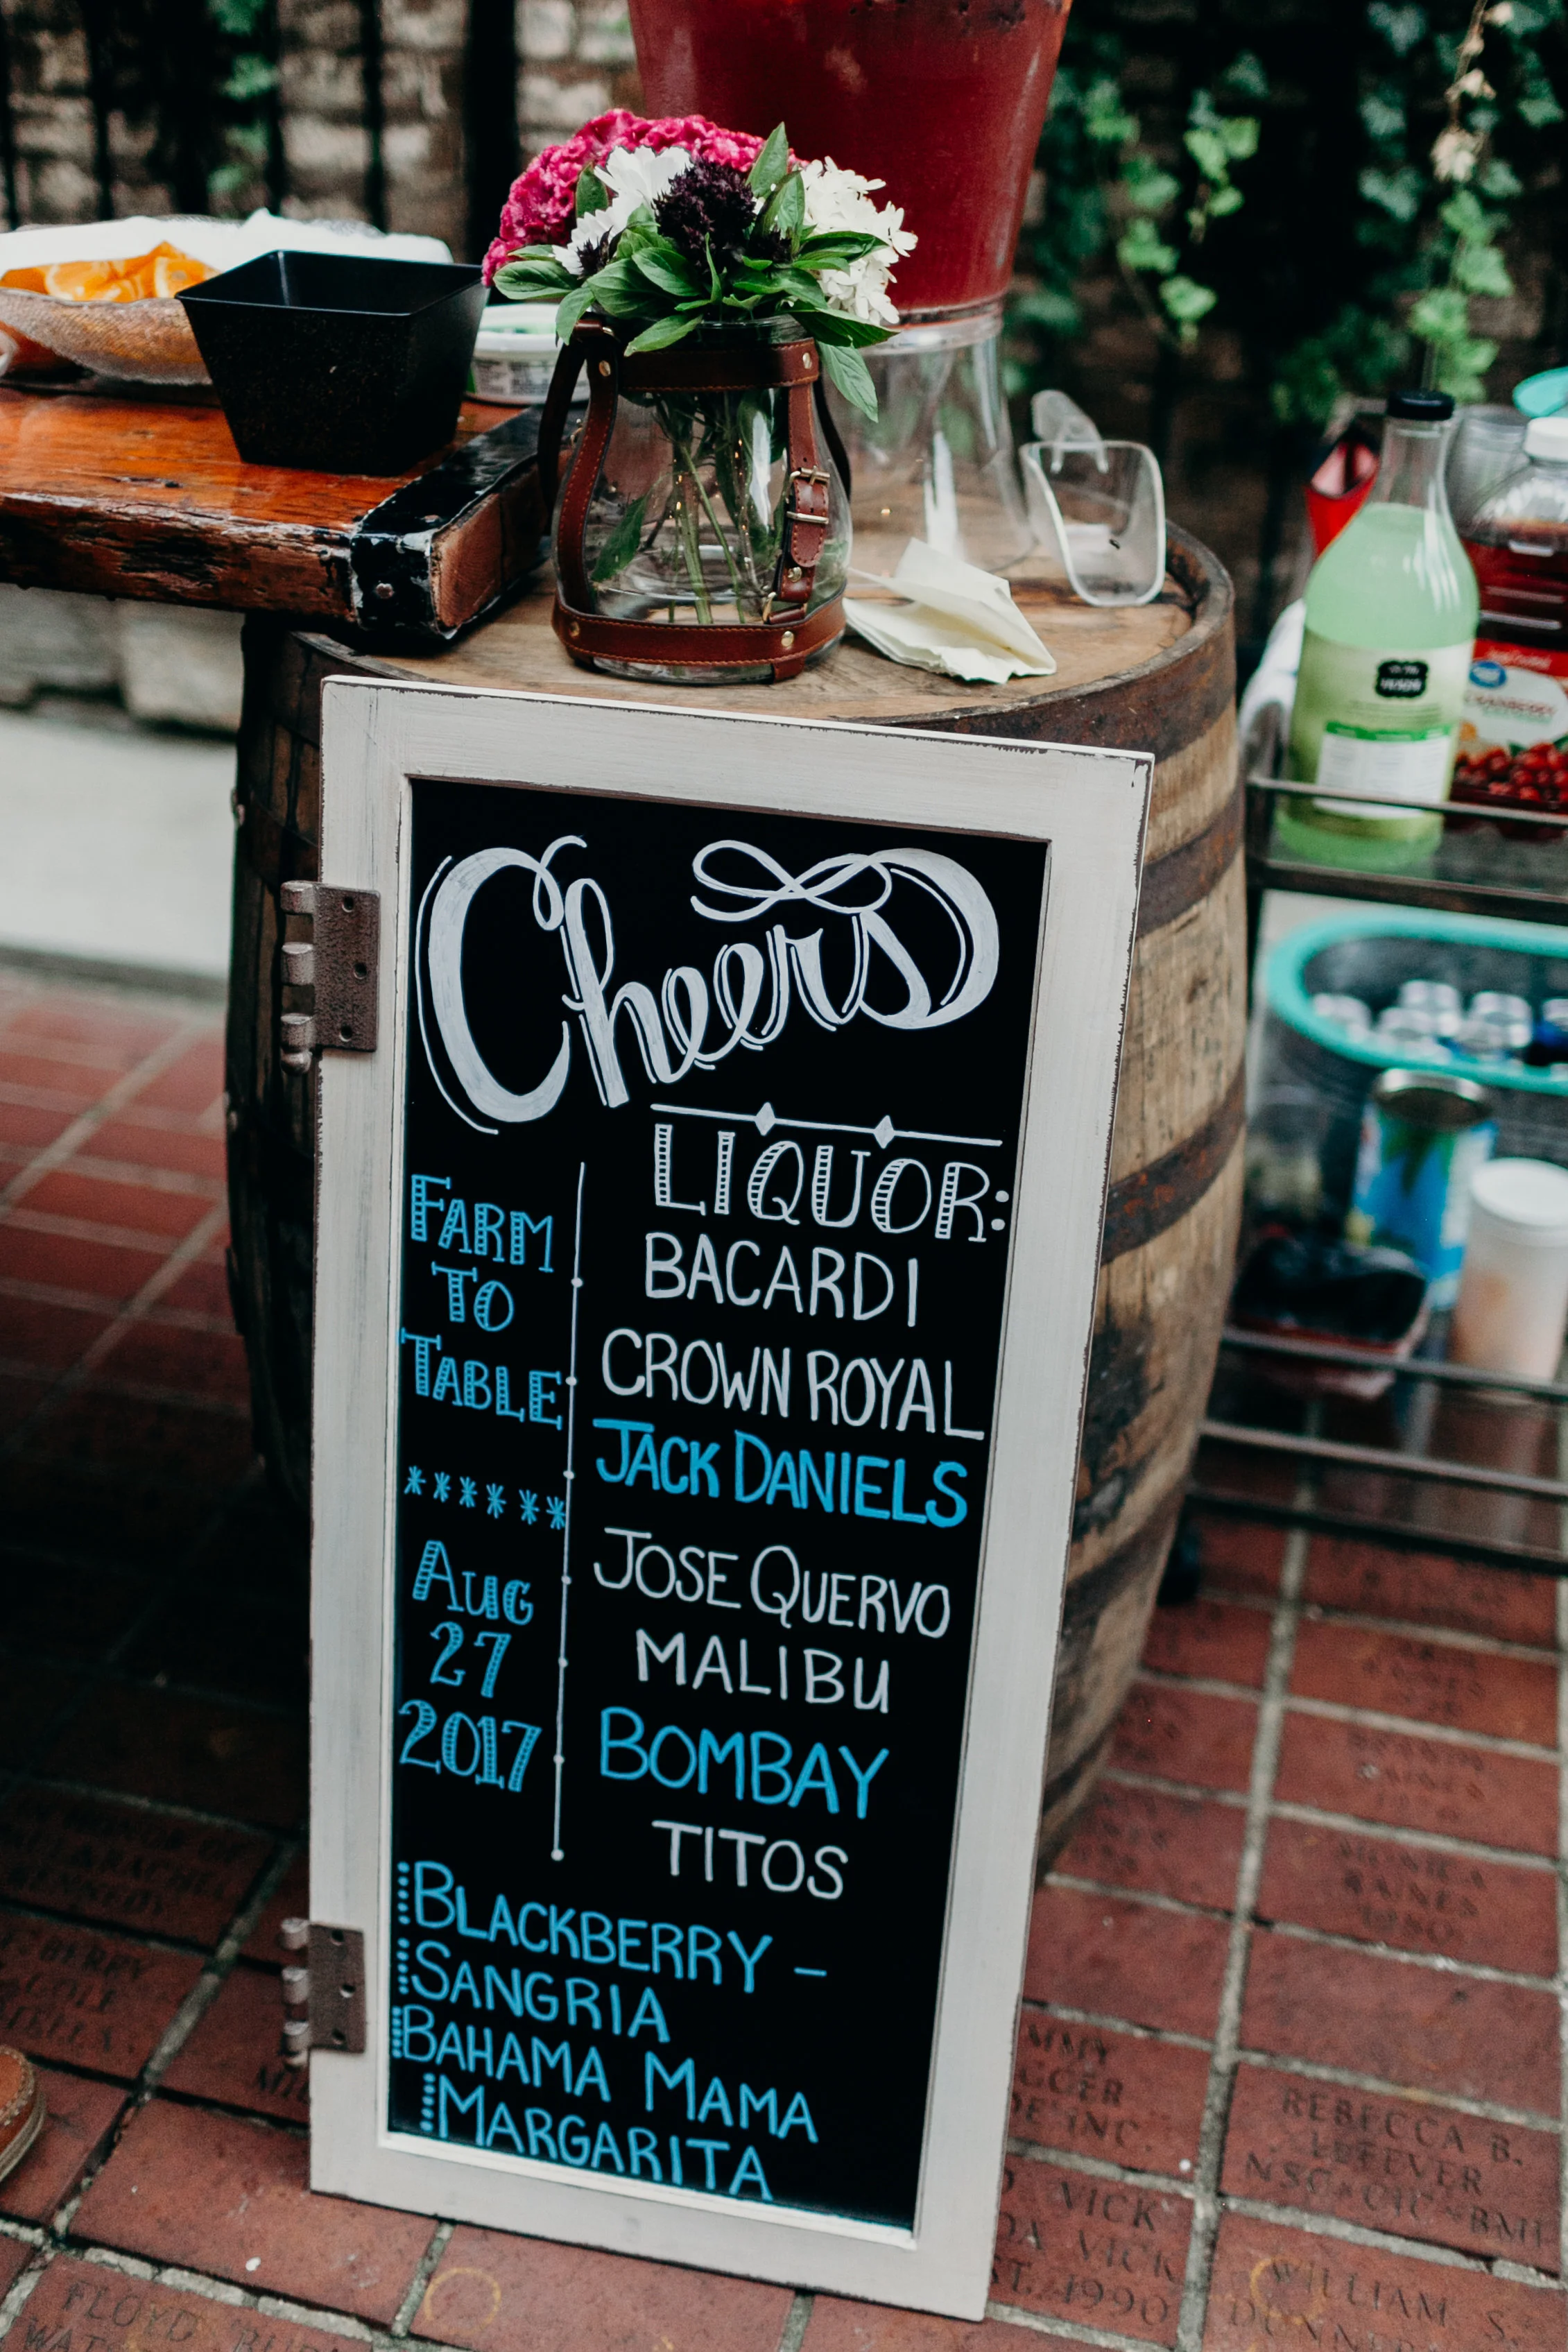 Cheers
FARM
TO
TABLE
******
AUG
27
2017
LIQUOR:
BACARDI
CROWN ROYAL
JACK DANIELS
JOSE QUERVO
MALIBU
BOMBAY
TITOS
BLACKBERRY –
SANGRIA
BAHAMA MAMA
MARGARITA
REBECCA B.
LEFEVER
VICK
VICK
1990
WILLIAM S.
FLOYD